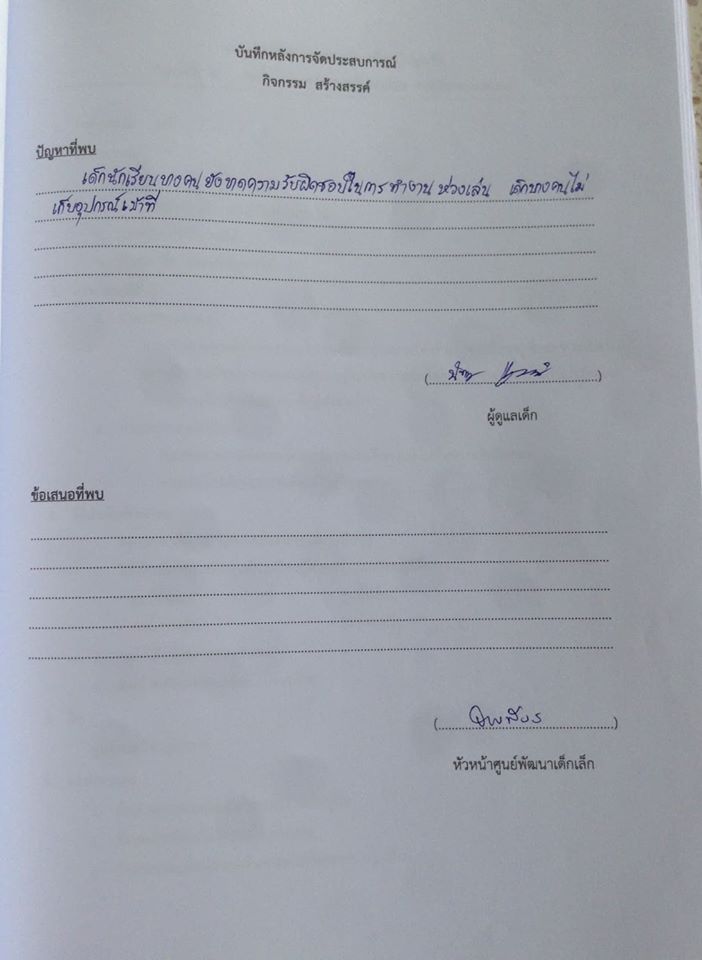 บันทึกหลังการจัดประสบการณ์
กิจกรรม สร้างสรรค์
ปัญหาที่พบ
เด็กนักเรียนบางคนยังขาดความรับผิดชอบในการทำงาน ห่วงเล่น เด็กบางคนไม่
เก็บอุปกรณ์เข้าที่
ผู้ดูแลเด็ก
ข้อเสนอที่พบ
หัวหน้าศูนย์พัฒนาเด็กเล็ก